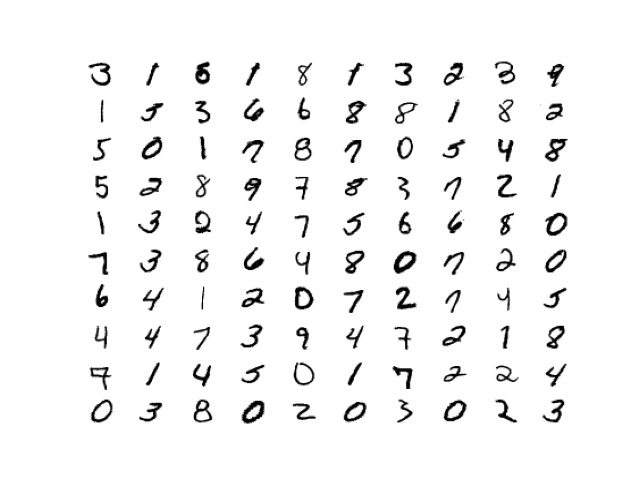 3 1 6 1 8 1 3 2 3 9
1 5 3 6 6 8 8 1 8 2
5 0 1 7 8 7 0 5 4 8
5 2 8 9 7 8 3 7 2 1
1 3 2 4 7 5 6 6 8 0
7 3 8 6 4 8 0 7 2 0
6 4 1 2 0 7 2 7 4 5
4 4 7 3 9 4 7 2 1 8
7 1 4 5 0 1 7 2 2 4
0 3 8 0 2 0 3 0 2 3